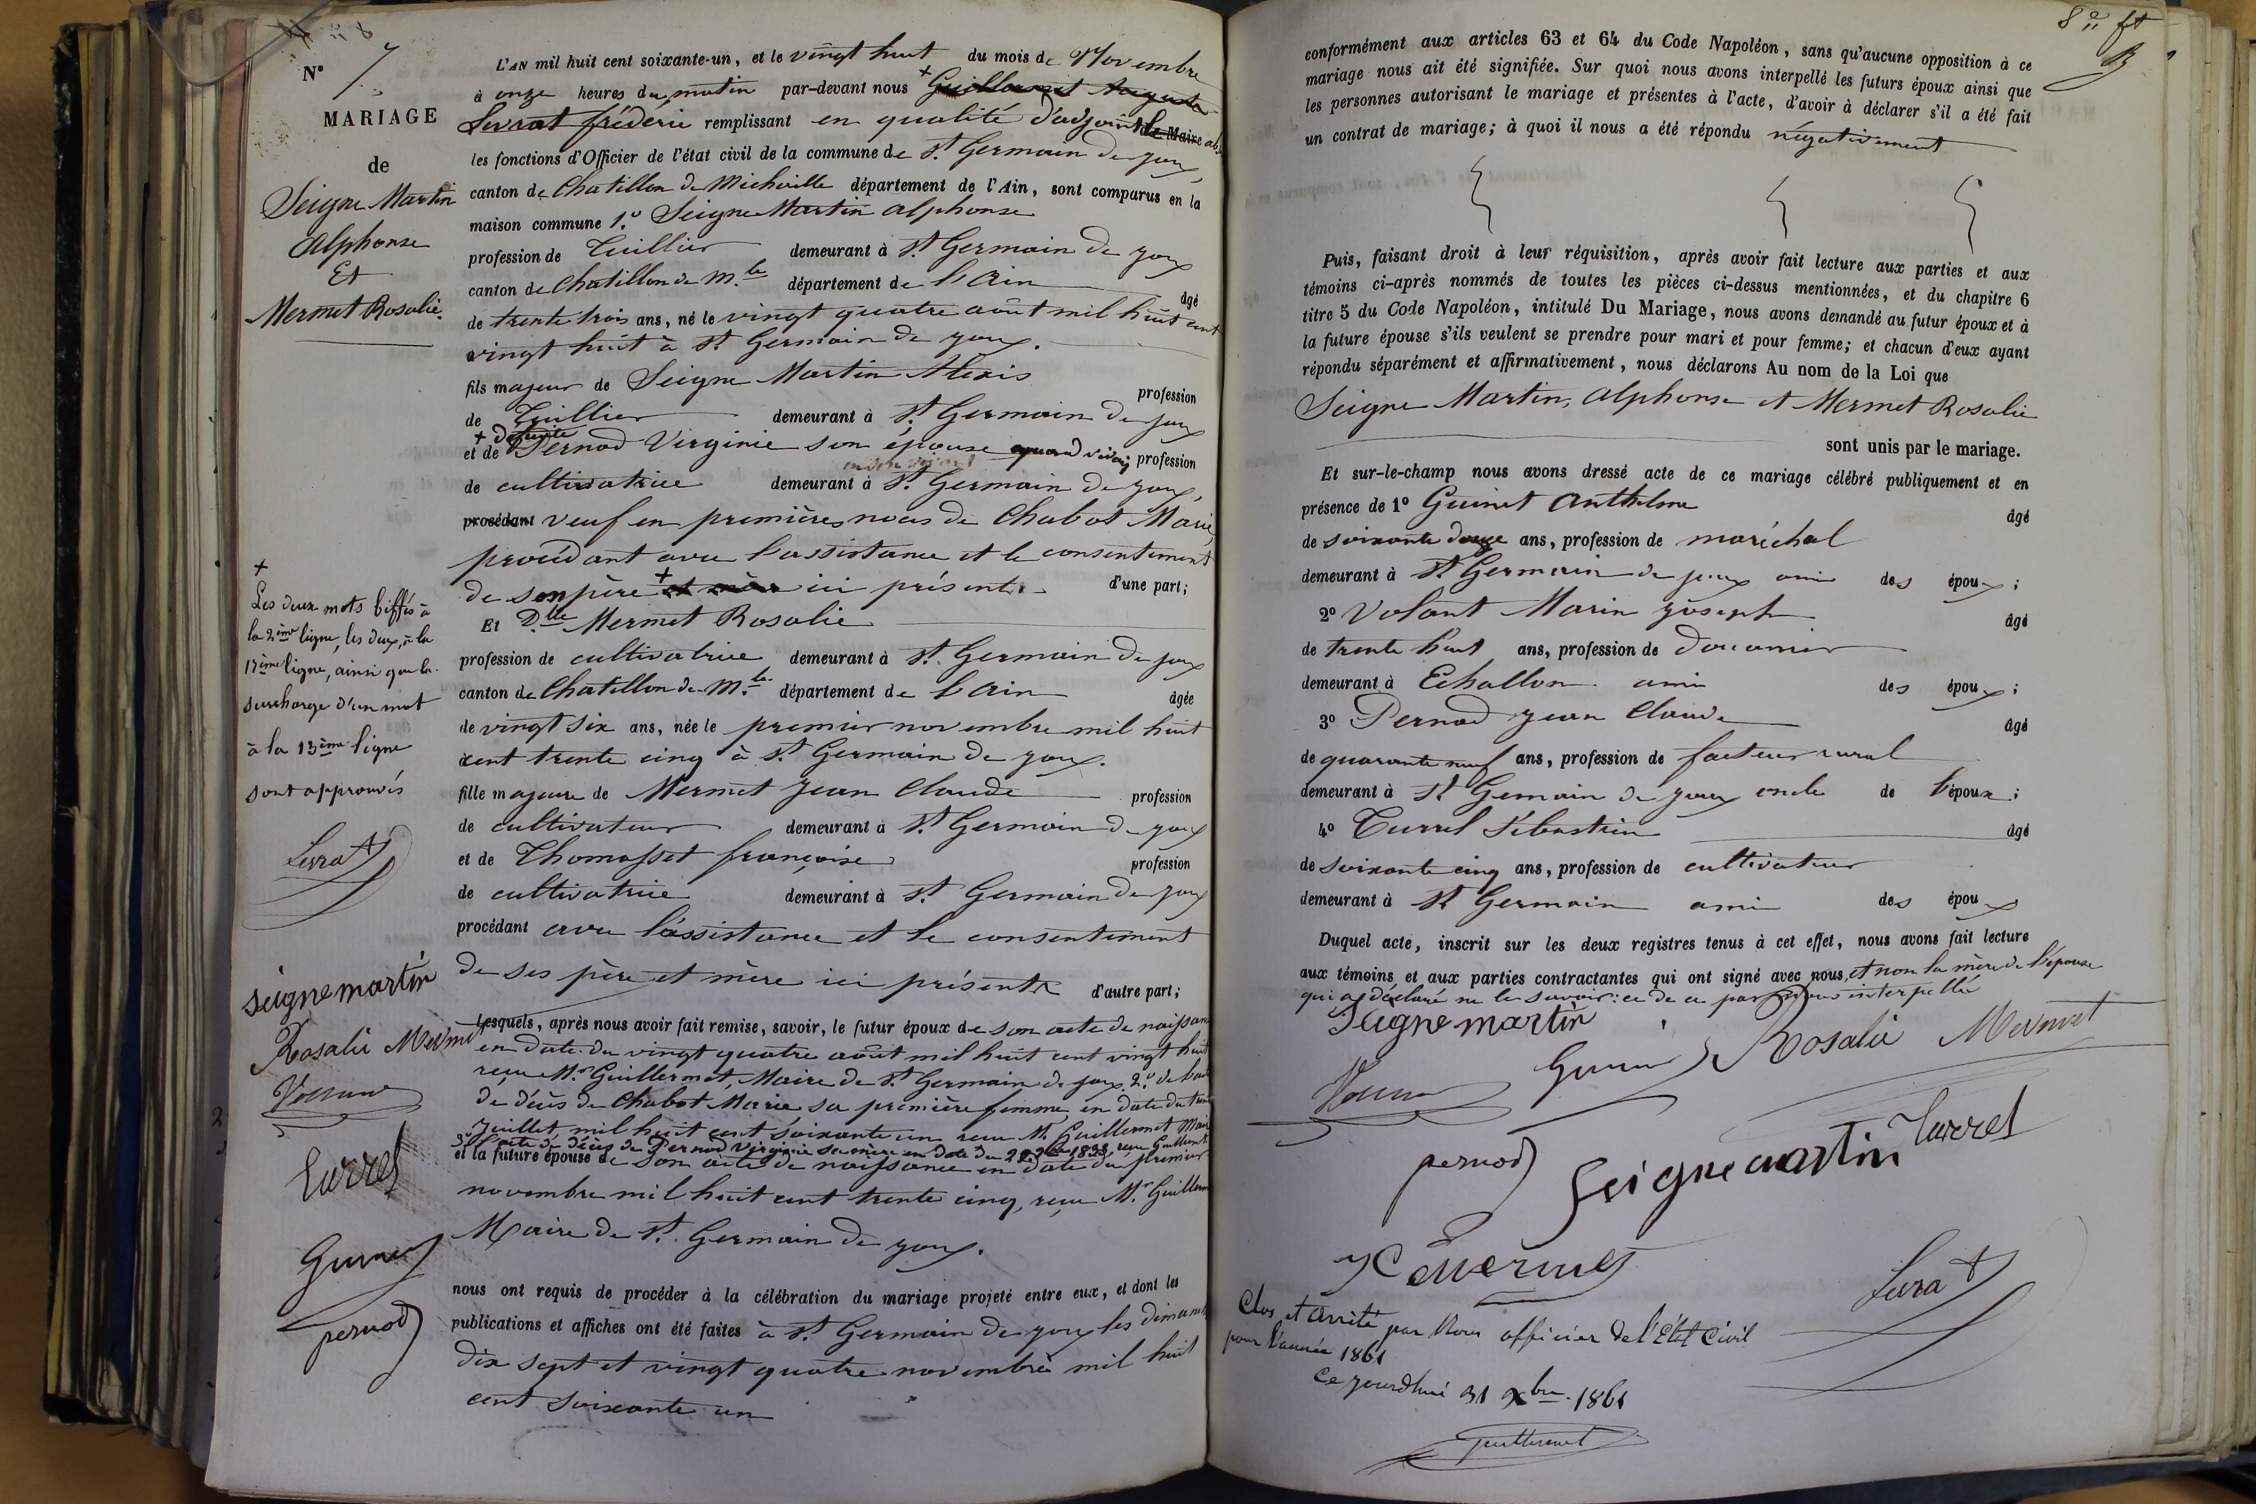 N° 7
MARIAGE
de
Seigne Martin
Alphonse
Et
Mermet Rosalie
L'AN mil huit cent soixante-un, et le vingt huit du mois de Novembre
à onze heures du matin par-devant nous + Guillermet Auguste
Livrat fréderic remplissant en qualité d'adjoint le Maire
les fonctions d'Officier de l'état civil de la commune de St Germain de joux,
canton de Chatillon de Michaille département de l'Ain, sont comparus en la
maison commune 1.° Seigne Martin alphonse
profession de Tuillier demeurant à St Germain de joux
canton de Chatillon de M.le département de l'ain âgé
de trente trois ans, né le vingt quatre août mil huit cent
vingt huit à St Germain de joux.
fils majeur de Seigne Martin Alexis profession
de Tuillier demeurant à St Germain de joux
+ Defunte
et de Pernod Virginie son épouse quand vivait profession
de cultivatrice demeurant à St Germain de joux,
procédant veuf en premières noces de Chabot Marie,
procédant avec l'assistance et le consentement
de son père + et mère ici présent. d'une part;
Et D.lle Mermet Rosalie
profession de cultivatrice demeurant à St Germain de joux
canton de Chatillon de M.le département de l'ain âgée
de vingt six ans, née le premier novembre mil huit
cent trente cinq à St Germain de joux.
fille majeure de Mermet Jean Claude profession
de cultivateur demeurant à St Germain de joux
et de Thomasset françoise profession
de cultivatrice demeurant à St Germain de joux
procédant avec l'assistance et le consentement
de ses père et mère ici présents d'autre part;
Lesquels, après nous avoir fait remise, savoir, le futur époux de son acte de naissan
en date du vingt quatre août mil huit cent vingt huit
reçu Mr Guillermet, Maire de St Germain de joux, 2° de
de décès de Chabot Marie sa première femme en date du
Juillet mil huit cent soixante un reçu Mr Guillermet Maire
3° l'acte de décès de Pernod Virginie sa mère en date du reçu Guillermet
et la future épouse de son acte de naissance en date du premier
novembre mil huit cent trente cinq, reçu Mr Guillerm
Maire de St Germain de joux.
nous ont requis de procéder à la célébration du mariage projeté entre eux, et dont les
publications et affiches ont été faites à St Germain de joux les dimanch
dix sept et vingt quatre novembre mil huit
cent soixante un
+
Les deux mots biffés à
la 2ème ligne, les deux, à la
17ème ligne, ainsi que la
surcharge d'un mot
à la 13ème ligne
sont approuvés
Livrat
seignemartin
Rosalie Mermet
Volland
Turrel
Guinet
pernod
8 ft
conformément aux articles 63 et 64 du Code Napoléon, sans qu'aucune opposition à ce
mariage nous ait été signifiée. Sur quoi nous avons interpellé les futurs époux ainsi que
les personnes autorisant le mariage et présentes à l'acte, d'avoir à déclarer s'il a été fait
un contrat de mariage; à quoi il nous a été répondu négativement
Puis, faisant droit à leur réquisition, après avoir fait lecture aux parties et aux
témoins ci-après nommés de toutes les pièces ci-dessus mentionnées, et du chapitre 6
titre 5 du Code Napoléon, intitulé Du Mariage, nous avons demandé au futur époux et à
la future épouse s'ils veulent se prendre pour mari et pour femme; et chacun d'eux ayant
répondu séparément et affirmativement, nous déclarons Au nom de la Loi que
Seigne Martin, alphonse et Mermet Rosalie
sont unis par le mariage.
Et sur-le-champ nous avons dressé acte de ce mariage célébré publiquement et en
présence de 1° Guinet Anthelme âgé
de soixante douze ans, profession de maréchal
demeurant à St Germain de joux ami des époux;
2° Volant Marin joseph âgé
de trente huit ans, profession de douanier
demeurant à Echallon ami des époux;
3° Pernod jean Claude âgé
de quarante neuf ans, profession de facteur rural
demeurant à St Germain de joux oncle de l'époux;
4° Turrel Sébastien âgé
de soixante cinq ans, profession de cultivateur
demeurant à St Germain ami des époux
Duquel acte, inscrit sur les deux registres tenus à cet effet, nous avons fait lecture
aux témoins et aux parties contractantes qui ont signé avec nous, et non la mère de l'épouse
qui a déclaré ne le savoir: ce de ce par nous interpellé
Seigne martin
Rosalie Mermet
Guinet
Turrel
pernod
Seigne martin
JC Mermet
Livrat
Clos et arrêté par Nous officier de l'Etat Civil
pour l'année 1861
Ce jourdhui 31 xbre 1861
Guillermet